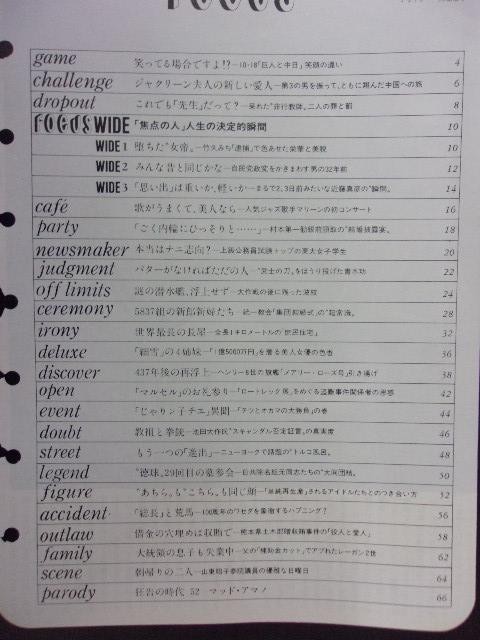 FOCUS
game 笑ってる場合ですよ!?―10・18「巨人と中日」笑顔の違い 4
challenge ジャクリーン夫人の新しい愛人―第3の男を振って、ともに翔んだ中国への旅 6
dropout これでも「先生」だって?―呆れた"非行教師、二人の罪と罰 8
FOCUS WIDE 「焦点の人」人生の決定的瞬間 10
WIDE 1 堕ちた"女帝。―竹久みち「逮捕」で色あせた栄華と美貌 10
WIDE 2 みんな昔と同じかな―自民党政変をかきまわす男の32年前 12
WIDE 3 「思い出」は重いか、軽いか―まるで2、3日前みたいな近藤真彦の"瞬間。 14
café 歌がうまくて、美人なら―人気ジャズ歌手マリーンの初コンサート 16
party 「ごく内輪にひっそりと……」―村本第一勧銀前頭取の"結婚披露宴。 18
newsmaker 本当はナニ志向?―上級公務員試験トップの東大女子学生 20
judgment バターがなければただの人―"武士の刀。をほうり投げた青木功 22
off limits 謎の潜水艦、浮上せず―大作戦の後に残った波紋 24
ceremony 5837組の新郎新婦たち―統一教会「集団結婚式」の"超常識。 28
irony 世界最長の長屋―全長1キロメートルの"庶民住宅」 32
deluxe 「細雪」の4姉妹―「1億5000万円」を着る美人女優の色香 36
discover 437年後の再浮上―ヘンリー8世の旗艦「メアリー・ローズ号」引き揚げ 38
open 「マルセル」のお礼参り―「ロートレック展」をめぐる盗難事件関係者の思惑 42
event 「じゃりン子チエ」異聞―「テツとオカマの大勝負」の巻 44
doubt 教祖と拳銃―池田大作氏"スキャンダル否定証言。の真実度 46
street もう一つの「進出」―ニューヨークで話題の"トルコ風呂。 48
legend "徳球。29回目の墓参会―日共除名組元同志たちの"大同団結。 50
figure "あちら。も"こちら。も同じ顔―「単純再生産」されるアイドルたちとのつき合い方 52
accident 「総長」と荒馬―100周年のワセダを象徴するハプニング? 56
outlaw 借金の穴埋めは収賄で―熊本県土木部贈収賄事件の「役人と愛人」 58
family 大統領の息子も失業中―父の「補助金カット」でアブれたレーガン2世 62
scene 朝帰りの二人―山東昭子参院議員の優雅な日曜日 64
parody 狂告の時代 52―マッド・アマノ 66